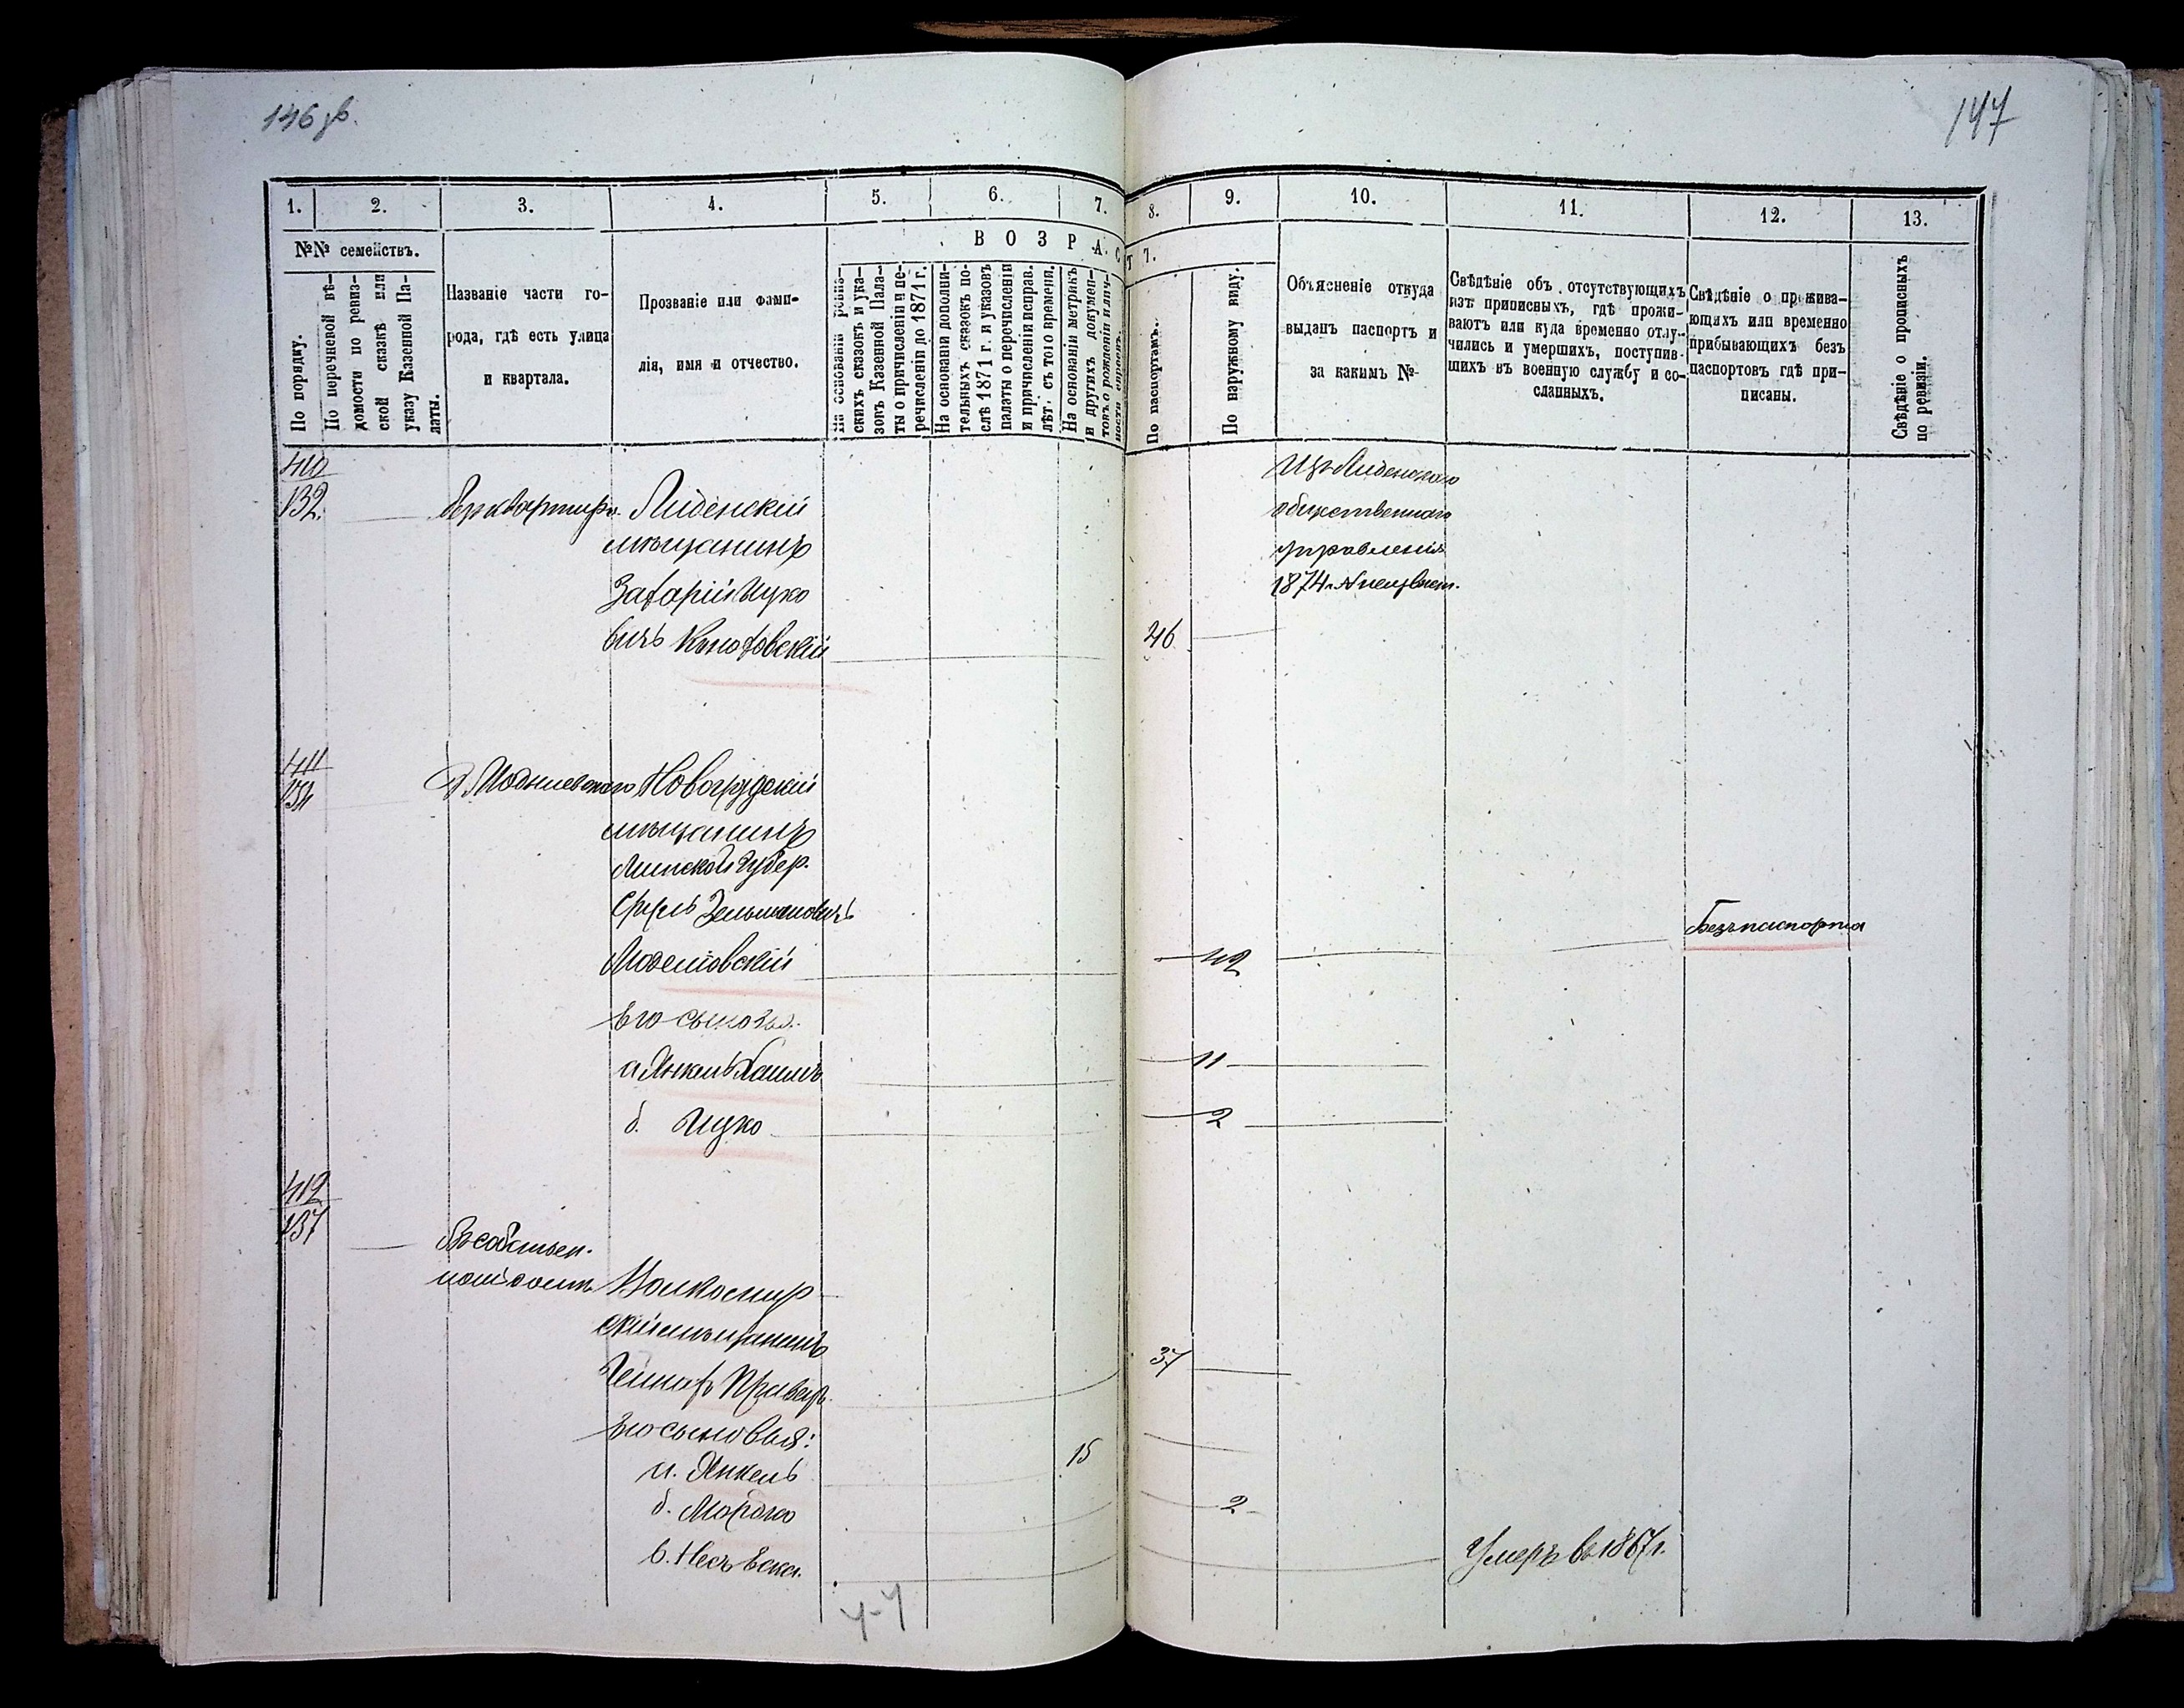 146 об.
147
1.
2.
3.
4.
5.
6.
7.
8.
9.
10.
11.
12.
13.
№№ семействъ.
По порядку.
По перечневой вѣ-
домости по ревиз-
ской сказкѣ или
указу Казенной Па-
латы.
Названіе части го-
рода, гдѣ есть улица
и квартала.
Прозваніе или фами-
лія, имя и отчество.
В О З Р А С Т Ъ.
На основаніи ревиз-
скихъ сказокъ и ука-
зовъ Казенной Пала-
ты о причисленіи и пе-
речисленіи до 1871 г.
На основаніи дополни-
тельныхъ сказокъ по-
слѣ 1871 г. и указовъ
палаты о перечисленіи
и причисленіи исправ.
лѣт. съ того времени.
На основаніи метрикъ
и другихъ докумен-
товъ о рожденіи и
По паспортамъ.
По наружному виду.
Объясненіе откуда
выданъ паспортъ и
за какимъ №
Свѣдѣніе объ отсутствующихъ
изъ приписныхъ, гдѣ прожи-
ваютъ или куда временно отлу-
чились и умершихъ, поступив-
шихъ въ военную службу и со-
сланныхъ.
Свѣдѣніе о прожива-
ющихъ или временно
прибывающихъ безъ
паспортовъ гдѣ при-
писаны.
Свѣдѣніе о прописныхъ
по ревизіи.
410
132.
Лиденскій
мѣщанинъ
Захарій Ицко
вичъ
46
Изъ Лиденскаго
общественнаго
управленія
1874 г. №
411
134
Новогрудскій
мѣщанинъ
Минской Губер.
Зельмановичъ
42
Безъ паспорта
Его сыновья.
а Янкель Хаимъ
11
б. Ицко
2
412
137
Въ собствен-
номъ домѣ
Волковыс
скій мѣщанинъ
37
Его сыновья:
а. Янкель
15
б.
2
в.
Умеръ въ 1867 г.
4-4